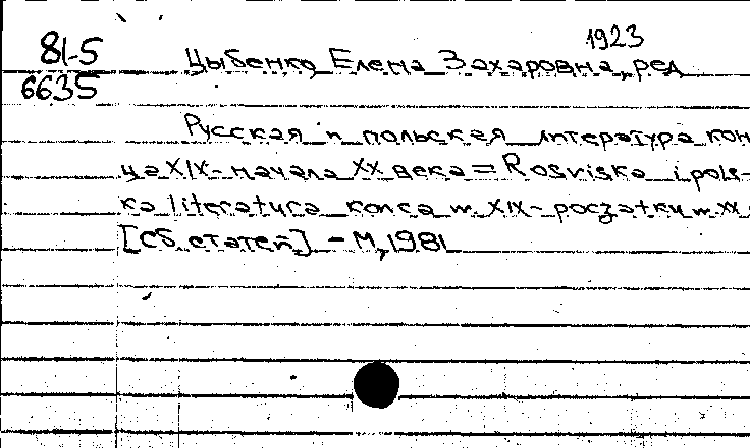 1923
81-5 Цыбенко Елена Захаровна, ред
6635
Русская и польская литература кон
ца XIX- начала XX века = Rosviska i pols-
ka literatura konca w. XIX- początku w. XX
[Сб. статей] - М, 1981